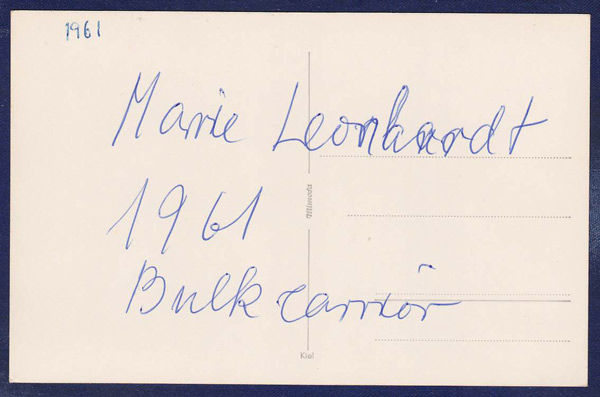 1961
Marie Leonhardt
1961
Bulkcarriör
Mimosta
Kiel